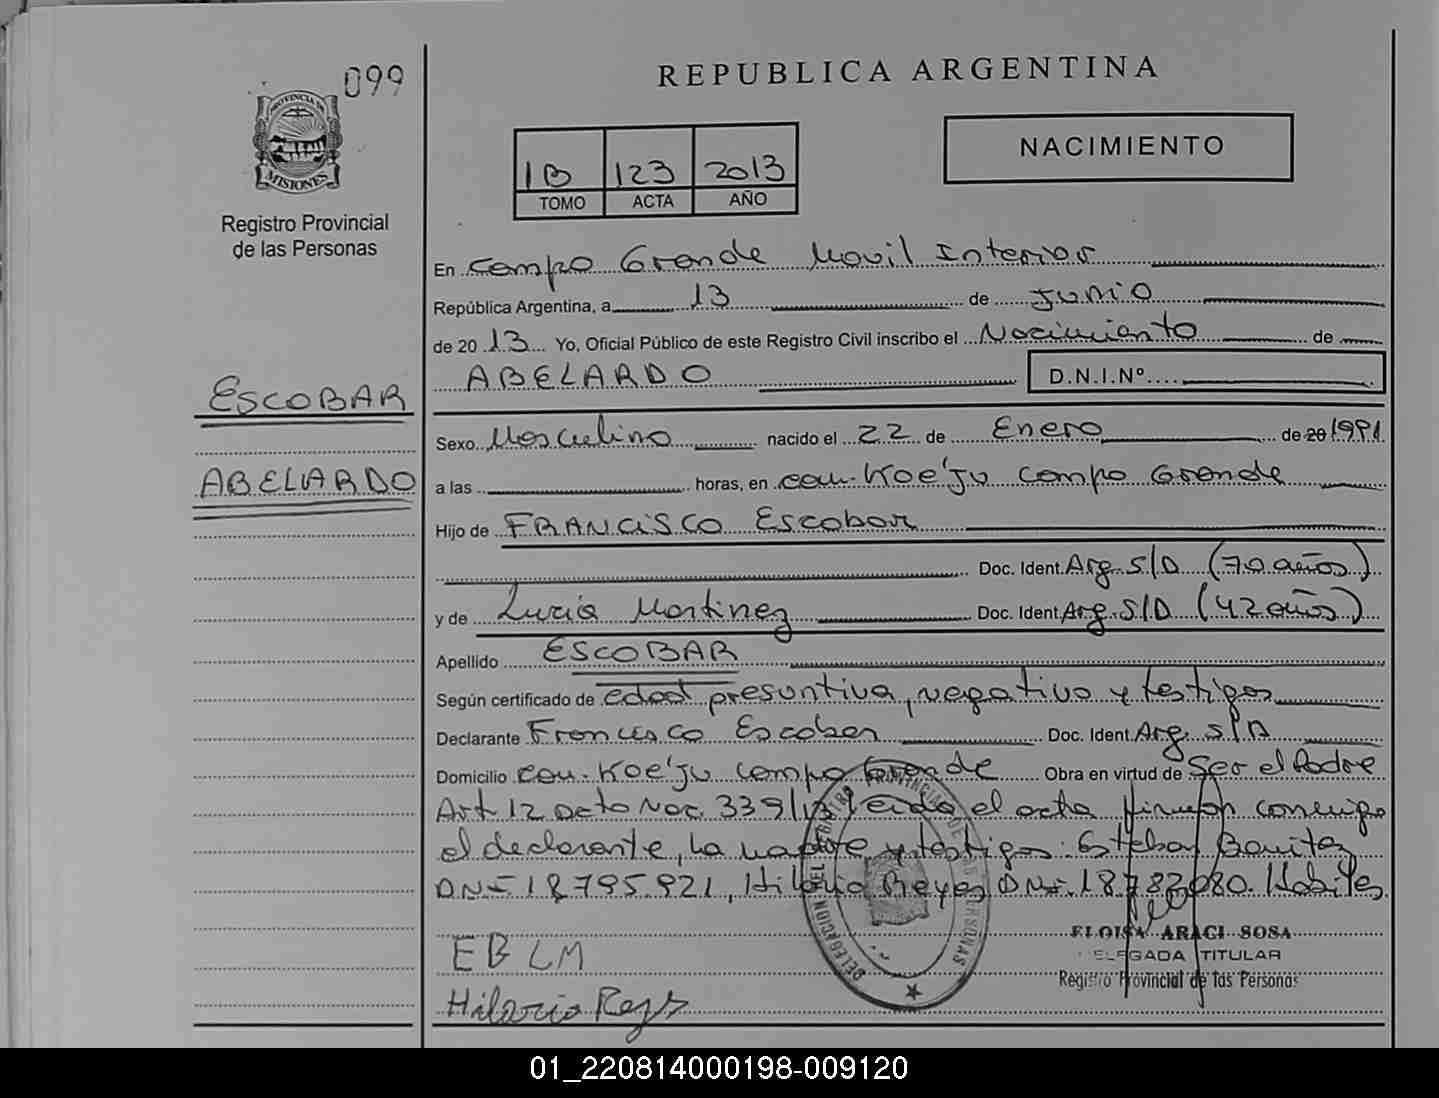 099
REPUBLICA ARGENTINA
PROVINCIA DE
MISIONES
Registro Provincial
de las Personas
NACIMIENTO
1B 123 2013
TOMO ACTA AÑO
En Campo Grande Movil Interior
República Argentina, a 13 de Junio
de 2013 Yo, Oficial Público de este Registro Civil inscribo el Nacimiento de
ABELARDO D.N.I.Nº
ESCOBAR
ABELARDO
Sexo Masculino nacido el 22 de Enero de 20 1991
a las horas, en com. Koe'ju Campo Grande
Hijo de FRANCISCO Escobar
Doc. Ident. Arg. S/D (70 años)
y de Lucia Martinez Doc. Ident. Arg. S/D (42 años)
Apellido ESCOBAR
Según certificado de edad presuntiva, negativo y testigos
Declarante Francisco Escobar Doc. Ident. Arg. S/D
Domicilio com. Koe'ju Campo Grande Obra en virtud de Ser el Padre
Art 12 Dcto Nac. 339/13 leida el acta firman conmigo
el declarante, la madre y testigos: Esteban Benitez
DNI 18795.921, Hilario Reyes DNI. 18782080. Habiles
DELEGACION DEL REGISTRO PROVINCIAL DE LAS PERSONAS
ELOISA ARACI SOSA
DELEGADA TITULAR
Registro Provincial de las Personas
EB LM
Hilario Reys
01_220814000198-009120